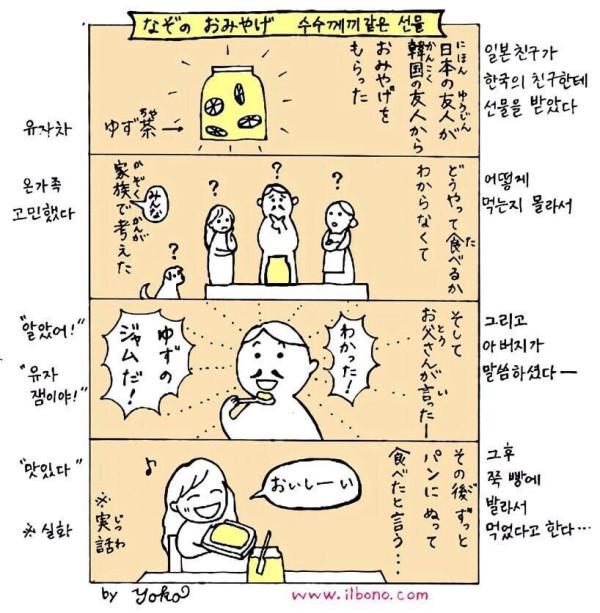 なぞの おみやげ 수수께끼 같은 선물
日本の友人が
にほん ゆうじん
韓国の友人から
かんこく
おみやげを
もらった
ゆず茶→
ちゃ
일본친구가
한국의 친구한테
선물을 받았다
유자차
どうやって食べるか
た
わからなくて
みんな
家族で考えた
かぞく かんが
?
?
?
?
어떻게
먹는지 몰라서
온가족
고민했다
そして
お父さんが言ったー
とう い
わかった!
ゆずの
ジャムだ!
그리고
아버지가
말씀하셨다ー
"알았어!"
"유자
잼이야!"
その後ずっと
パンにぬって
食べたと言う・・・
おいしーい
♪
※実話
じつわ
그후
쭉 빵에
발라서
먹었다고 한다…
"맛있다"
※ 실화
by yoko
www.ilbono.com